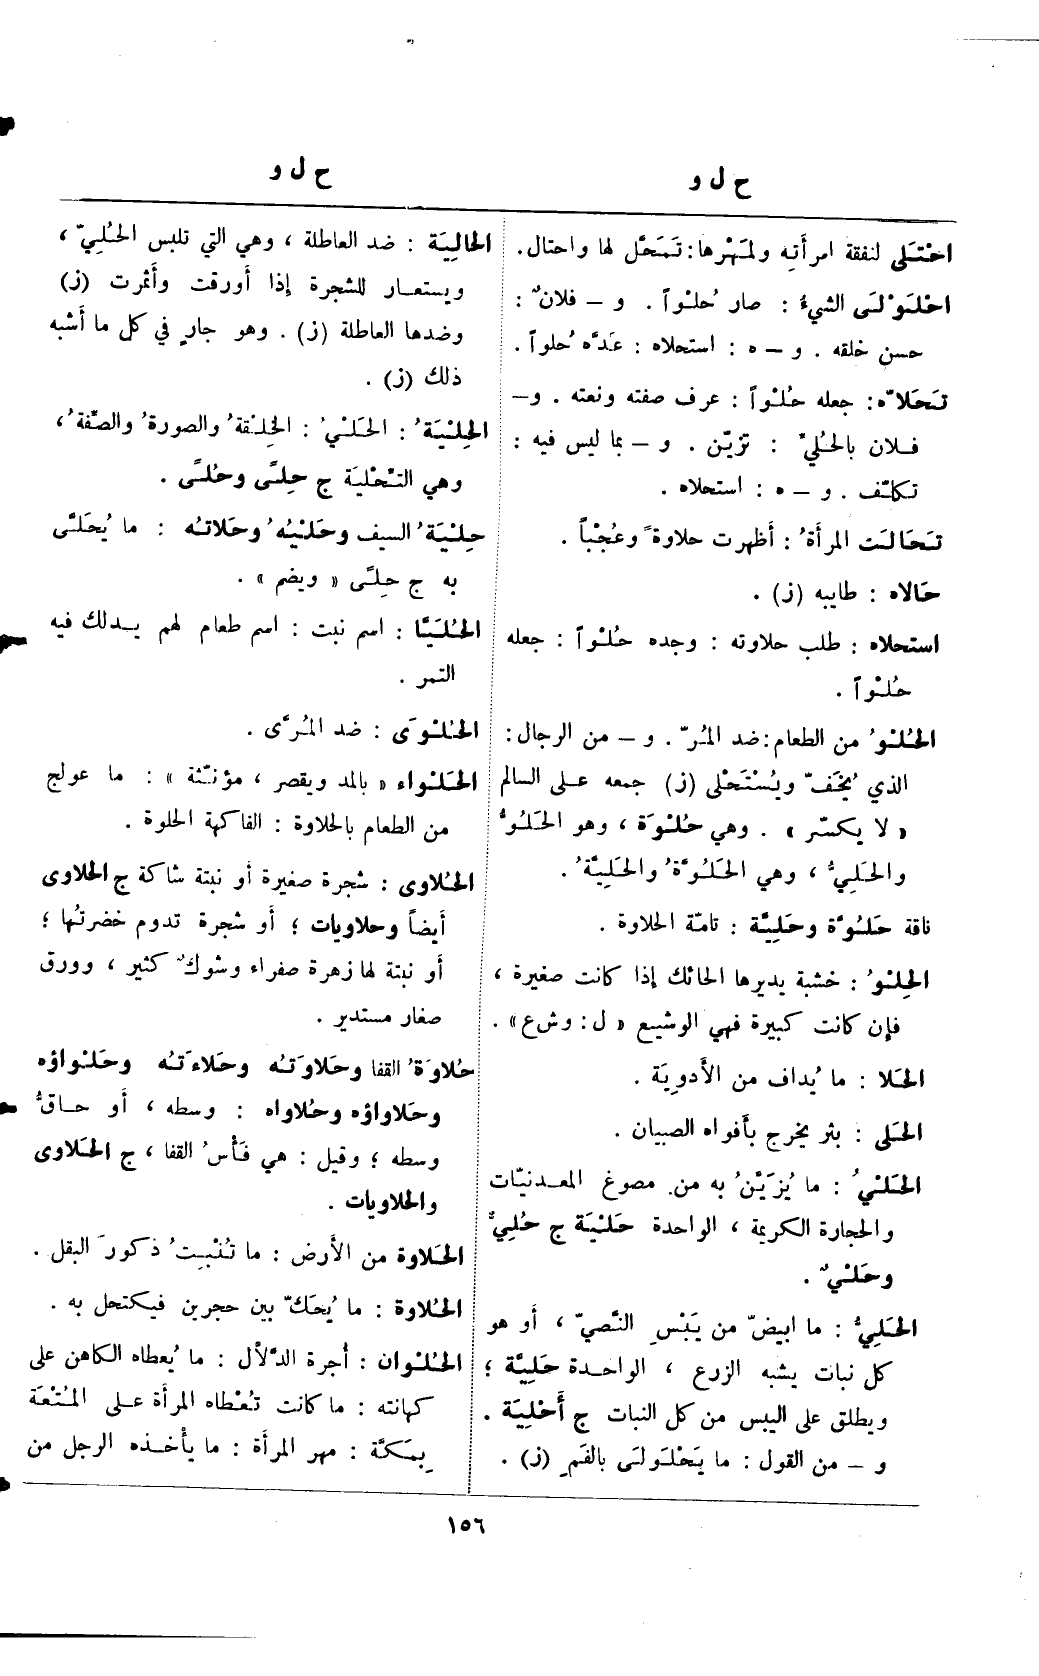 ح ل و
ح ل و
احْتَلَى لنفقة امرأته ولمَهْرها: تَمَحَّل لها واحتال.
احْلَوْلَى الشيءُ : صار حُلْواً . و – فلانٌ :
حسن خلقه . و – ه : استحلاه : عَدَّه حُلواً .
تَحَلاَّه: جعله حُلْواً : عرف صفته ونعته . و –
فلان بالحُلِيّ : تزيّن . و – بما ليس فيه :
تكلّف . و – ه : استحلاه .
تَحَالَت المرأةُ : أظهرت حلاوةً وعُجْباً .
حَالاه : طايبه (ز) .
استحلاه : طلب حلاوته : وجده حُلْواً : جعله
حُلْواً .
الحُلْوُ من الطعام: ضد المُرّ . و – من الرجال:
الذي يُخَفّ ويُسْتَحْلى (ز) جمعه على السالم
« لا يكسّر » . وهي حُلْوَة ، وهو الحَلُوُّ
والحَلِيُّ ، وهي الحَلُوَّةُ والحَلِيَّةُ .
ناقة حَلُوَّة وحَلِيَّة : تامّة الحلاوة .
الحِلْوُ : خشبة يديرها الحائك إذا كانت صغيرة ،
فإن كانت كبيرة فهي الوشيع « ل : وشع » .
الحَلا : ما يُداف من الأدوِيَة .
الحَلَى : بثر يخرج بأفواه الصبيان .
الحَلْيُ : ما يُزَيَّنُ به من مصوغ المعدنيّات
والحجارة الكريمة ، الواحدة حَلْيَة ج حُلِيٌّ
وحَلْيٌ .
الحَلِيُّ : ما ابيضّ من يَبَسِ النَّصيّ ، أو هو
كل نبات يشبه الزرع ، الواحدة حَلِيَّة ؛
ويطلق على اليبس من كل النبات ج أَحْلِيَة .
و – من القول : ما يَحْلَولَى بالفَمِ (ز) .
الحَالِيَة : ضد العاطلة ، وهي التي تلبس الحُلِيّ ،
ويستعار للشجرة إذا أورقت وأثمرت (ز)
وضدها العاطلة (ز) . وهو جارٍ في كل ما أشبه
ذلك (ز) .
الحِلْيَةُ : الحَلْيُ : الخِلْقةُ والصورةُ والصّفةُ ،
وهي التَحْلِيَة ج حِلىً وحُلىً .
حِلْيَةُ السيف وحَلْيُه وحَلاتُه : ما يُحَلَّى
به ج حِلىً « ويضم » .
الحُلَيَّا : اسم نبت : اسم طعام لهم يدلك فيه
التمر .
الحُلْوَى : ضد المُرَّى .
الحَلْواء « بالمد ويقصر ، مؤنثة » : ما عولج
من الطعام بالحلاوة : الفاكهة الحلوة .
الحُلاوى : شجرة صغيرة أو نبتة شاكة ج الحلاوى
أيضاً وحلاويات ؛ أو شجرة تدوم خضرتُها ؛
أو نبتة لها زهرة صفراء وشوكٌ كثير ، وورق
صغار مستدير .
حُلاوَةُ القفا وحَلاوَتُه وحَلاءَتُه وحَلْواؤه
وحَلاواؤه وحُلاواه : وسطه ، أو حاقُّ
وسطه ؛ وقيل : هي فَأْسُ القفا ، ج الحَلاوى
والحلاويات .
الحَلاوة من الأرض : ما تُنْبِتُ ذكورَ البقل .
الحُلاوة : ما يُحَكّ بين حجرين فيكتحل به .
الحُلْوان : أجرة الدَّلال : ما يُعطاه الكاهن على
كهانته : ما كانت تُعْطاه المرأة على المُتْعَة
بِمَكَّة : مهر المرأة : ما يأخذه الرجل من
١٥٦